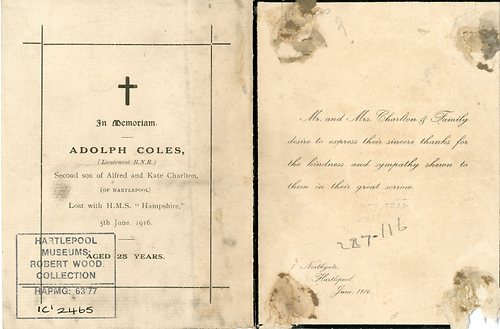 In Memoriam.
ADOLPH COLES,
(Lieutenant R.N.R.)
Second son of Alfred and Kate Charlton,
(OF HARTLEPOOL)
Lost with H.M.S. "Hampshire,"
5th June, 1916.
AGED 25 YEARS.
HARTLEPOOL
MUSEUMS
ROBERT WOOD
COLLECTION
HAPMG: 6377
IC' 2465
Mr. and Mrs. Charlton & Family
desire to express their sincere thanks for
the kindness and sympathy shewn to
them in their great sorrow.
287-116
Northgate,
Hartlepool,
June, 1916.